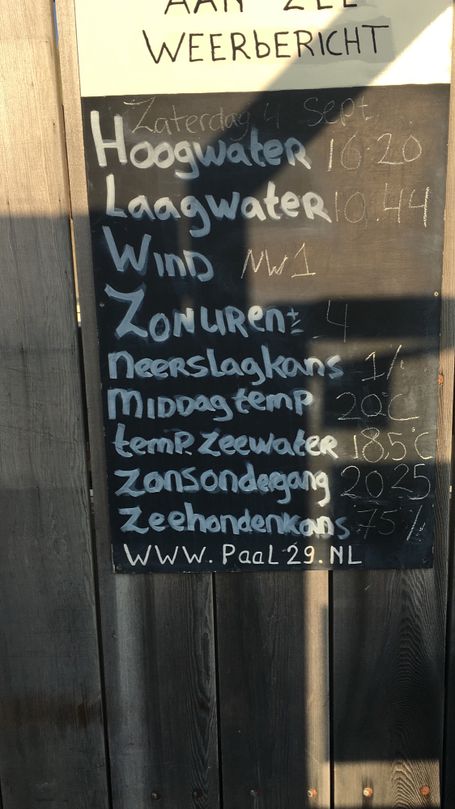 AAN ZEE
WEERbERICHT
Zaterdag 4 Sept.
Hoogwater 16.20
Laagwater 10.44
Wind NW1
Zonuren± 4
neerslagkans 1%
Middagtemp 20°C
temp. zeewater 18,5°C
zonsondergang 2025
zeehondenkans 75%
WWW.Paal29.NL